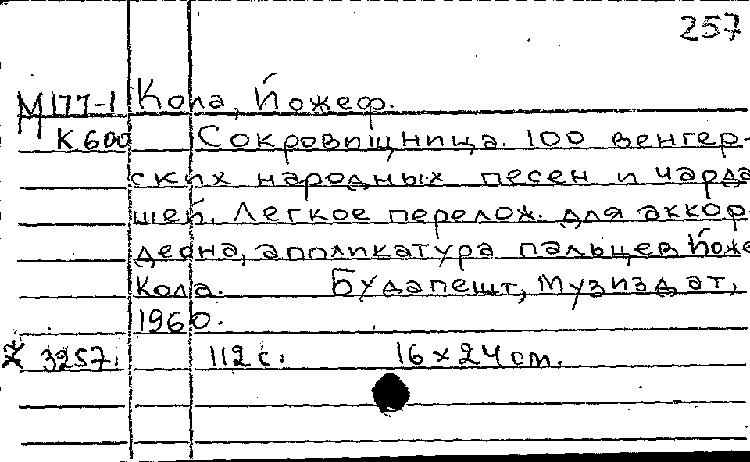 257
М177-1 Кола, Йожеф.
К600 Сокровищница. 100 венгер-
ских народных песен и чарда
шей. Легкое перелож. для аккор
деона, аппликатура пальцев Йоже
Кола. Будапешт, Музиздат,
1960.
3257. 112 с. 16 x 24 cm.